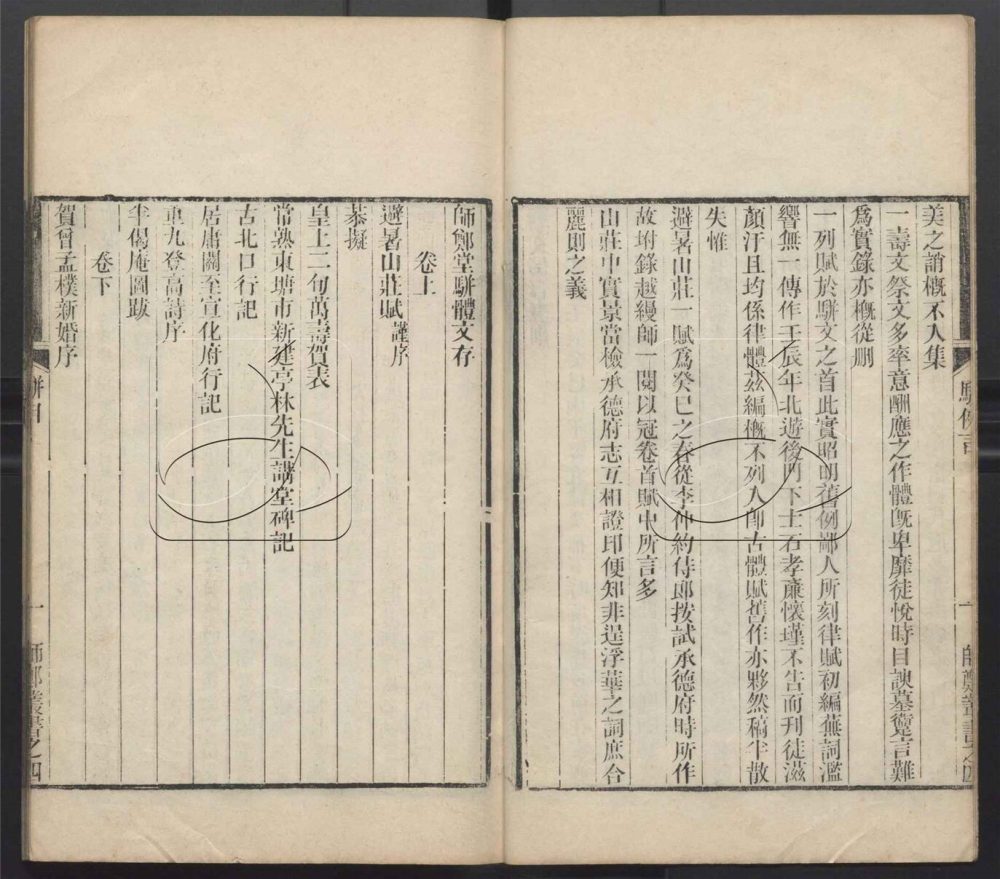 美之誚概不入集
一壽文祭文多率意酬應之作體旣卑靡徒悅時目諛墓寱言難
爲實錄亦概從删
一列賦於駢文之首此實昭明舊例鄙人所刻律賦初編蕪詞濫
響無一傳作壬辰年北遊後門下士石孝廉懷瑾不吿而刊徒滋
顏汗且均係律體茲編概不列入卽古體賦舊作亦夥然稿半散
失惟
避暑山莊一賦爲癸巳之春從李仲約侍郎按試承德府時所作
故坿錄越縵師一閱以冠卷首賦中所言多
山莊中實景當檢承德府志互相證印便知非逞浮華之詞庶合
麗則之義
師鄭堂駢體文存
卷上
避暑山莊賦謹序
恭擬
皇上二旬萬壽賀表
常熟東塘市新建亭林先生講堂碑記
古北口行記
居庸關至宣化府行記
重九登高詩序
半偈庵圖跋
卷下
賀曾孟樸新婚序
駢目
一
師鄭叢書之四